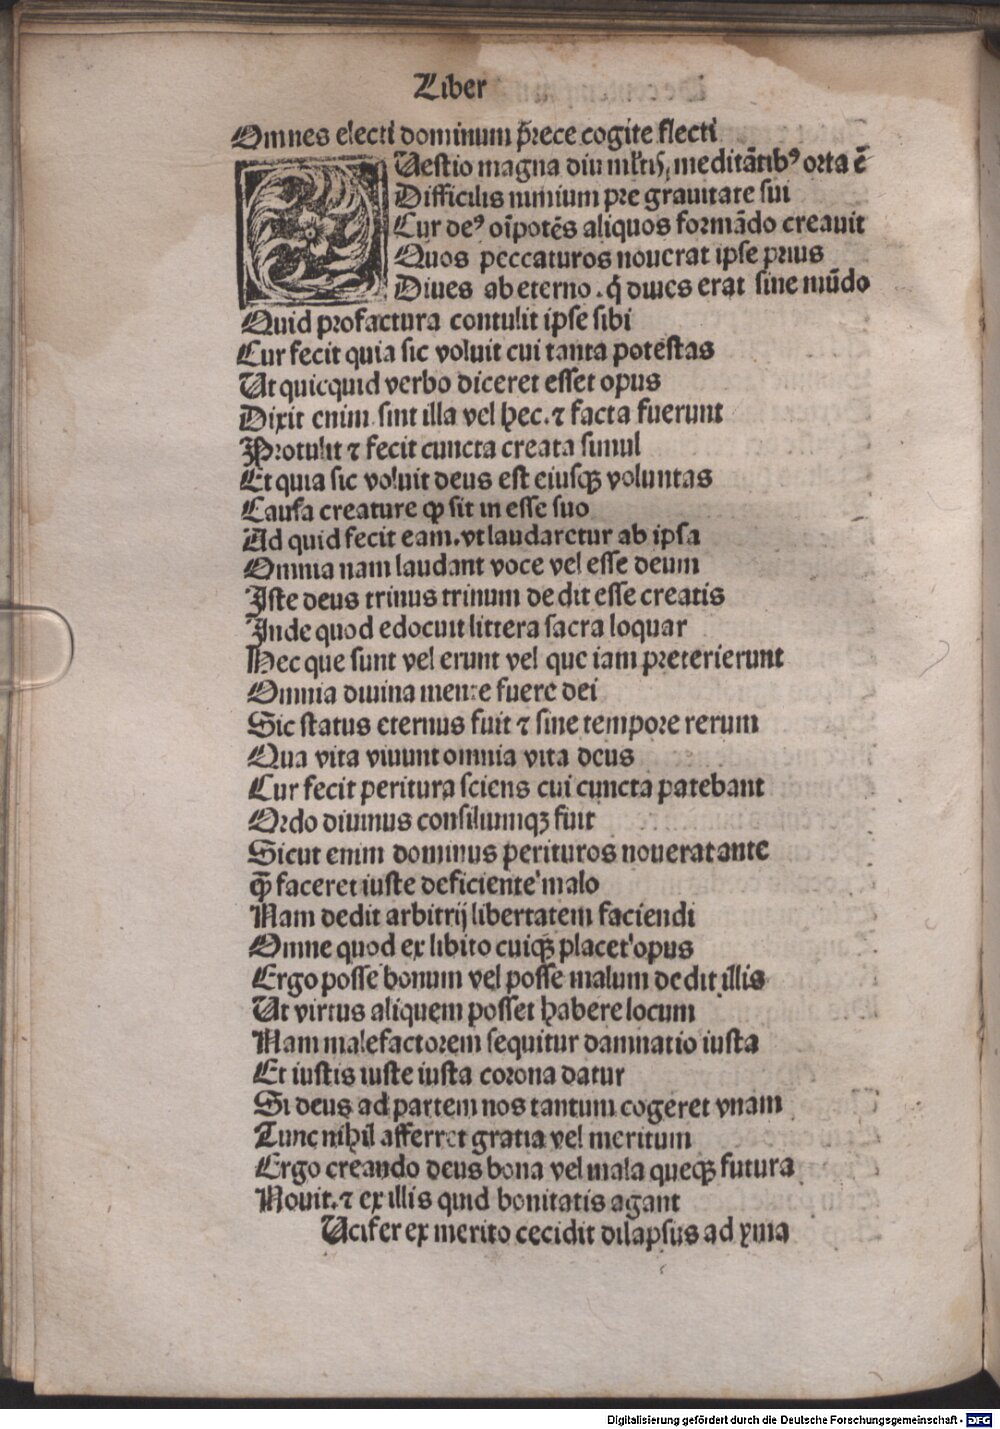 Liber
Omnes electi dominum p̄rece cogite flecti
Uestio magna diu ml'tis, meditātibꝰ orta ē
Difficilis nimium pre grauitate sui
Cur deꝰ oīpotēs aliquos formādo creauit
Quos peccaturos nouerat ipse prius
Diues ab eterno. q̄ diues erat sine mūdo
Quid profactura contulit ipse sibi
Cur fecit quia sic voluit cui tanta potestas
Ut quicquid verbo diceret esset opus
Dixit enim sint illa vel hec. ⁊ facta fuerunt
Protulit ⁊ fecit cuncta creata simul
Et quia sic voluit deus est eiusqꝫ voluntas
Causa creature ꝙ sit in esse suo
Ad quid fecit eam. vt laudaretur ab ipsa
Omnia nam laudant voce vel esse deum
Iste deus trinus trinum dedit esse creatis
Inde quod edocuit littera sacra loquar
Hec que sunt vel erunt vel que iam preterierunt
Omnia diuina mente fuere dei
Sic status eternus fuit ⁊ sine tempore rerum
Qua vita viuunt omnia vita deus
Cur fecit peritura sciens cui cuncta patebant
Ordo diuinus consiliumqꝫ fuit
Sicut enim dominus perituros nouerat ante
q̄ȝ faceret iuste deficiente malo
Nam dedit arbitrij libertatem faciendi
Omne quod ex libito cuiqꝫ placet opus
Ergo posse bonum vel posse malum dedit illis
Ut virtus aliquem posset habere locum
Nam malefactorem sequitur damnatio iusta
Et iustis iuste iusta corona datur
Si deus ad partem nos tantum cogeret vnam
Tunc nihil afferret gratia vel meritum
Ergo creando deus bona vel mala queqꝫ futura
Nouit. ⁊ ex illis quid bonitatis agant
Ucifer ex merito cecidit dilapsus ad yma
Digitalisierung gefördert durch die Deutsche Forschungsgemeinschaft - DFG